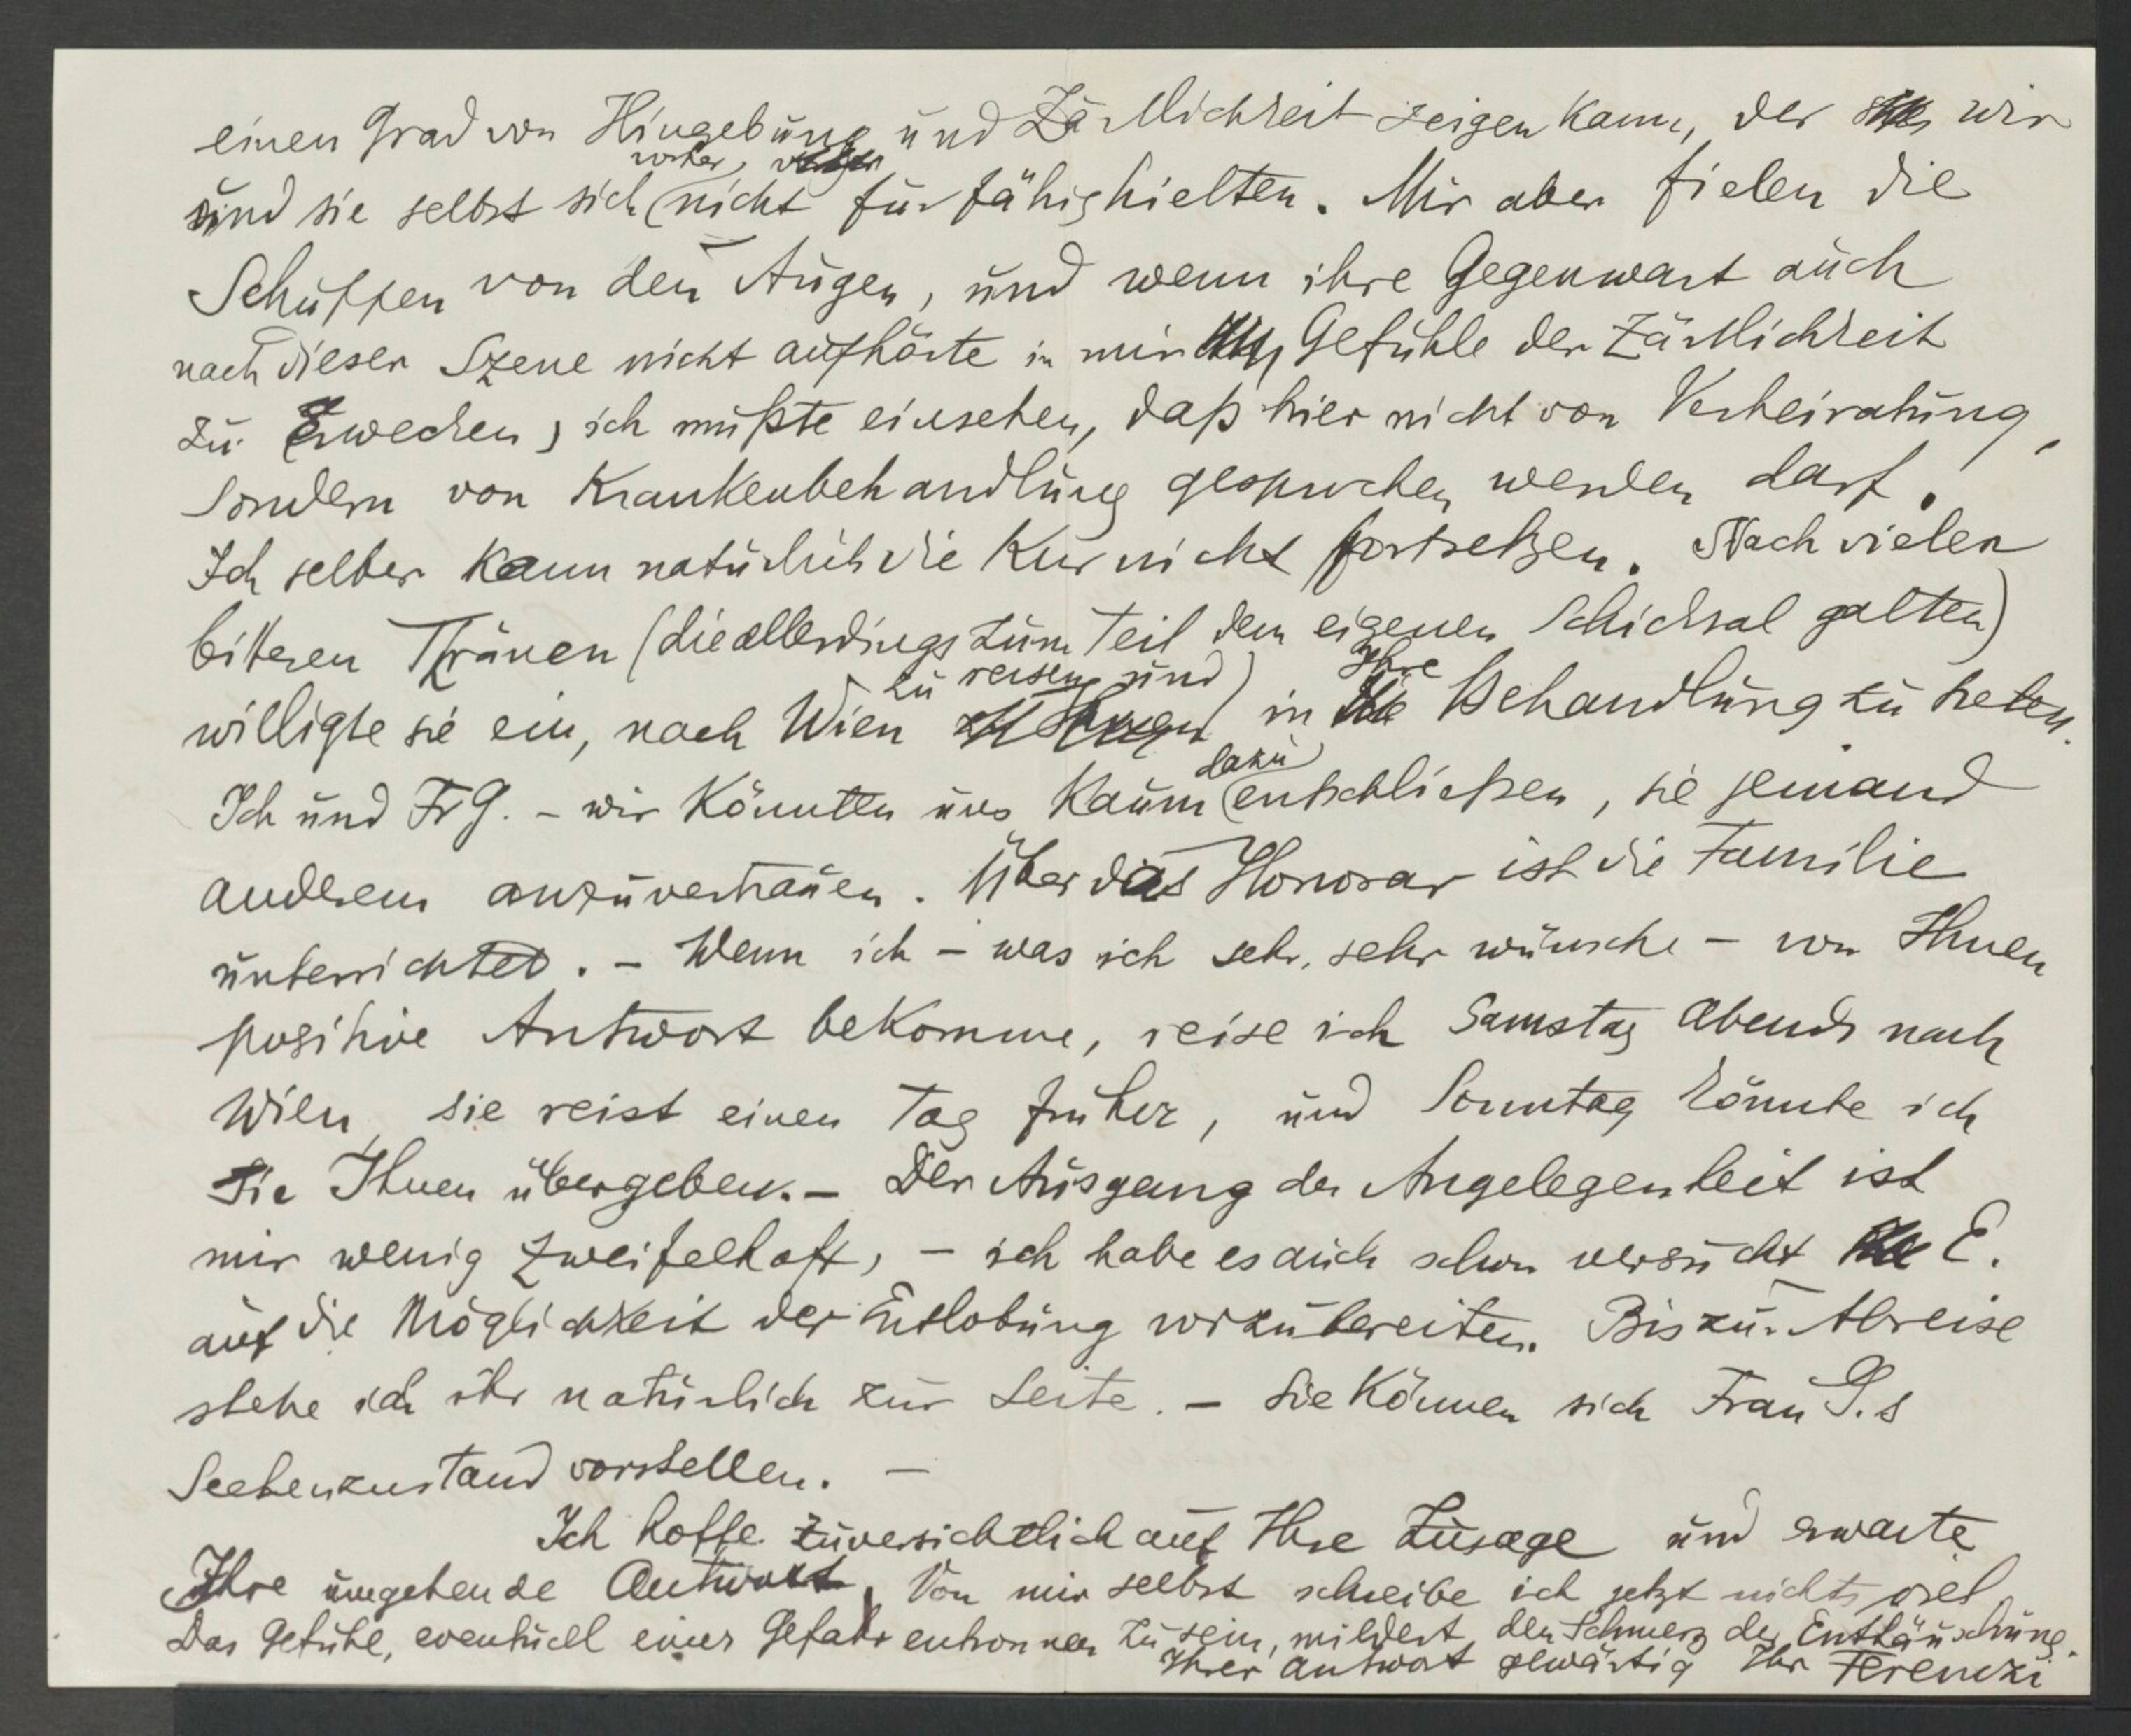 einen Grad von Hingebung und Zärtlichkeit zeigen kann, der wir
und sie selbst sich vorher nicht für fähig hielten. Mir aber fielen die
Schuppen von den Augen, und wenn ihre Gegenwart auch
nach dieser Szene nicht aufhörte in mir Gefühle der Zärtlichkeit
zu erwecken, ich mußte einsehen, daß hier nicht von Verheiratung,
sondern von Krankenbehandlung gesprochen werden darf.
Ich selber kann natürlich die Kur nicht fortsetzen. Nach vielen
bitteren Thränen (die allerdings zum Teil dem eigenen Schicksal galten)
willigte sie ein, nach Wien zu reisen und in Ihre Behandlung zu treten.
Ich und Fr G. – wir könnten uns kaum dazu entschließen, sie jemand
anderem anzuvertrauen. Über das Honorar ist die Familie
unterrichtet. – Wenn ich – was ich sehr, sehr wünsche – von Ihnen
positive Antwort bekomme, reise ich Samstag Abends nach
Wien, sie reist einen Tag früher, und Sonntag könnte ich
sie Ihnen übergeben. – Der Ausgang der Angelegenheit ist
mir wenig zweifelhaft, – ich habe es auch schon versucht E.
auf die Möglichkeit der Entlobung vorzubereiten. Bis zur Abreise
stehe ich ihr natürlich zur Seite. – Sie können sich Frau G.s
Seelenzustand vorstellen. –
Ich hoffe zuversichtlich auf Ihre Zusage und erwarte
Ihre umgehende Antwort. Von mir selbst schreibe ich jetzt nichts viel
Das Gefühl, eventuell einer Gefahr entronnen zu sein, mildert den Schmerz der Enttäuschung.
Ihrer Antwort gewärtig Ihr Ferenczi